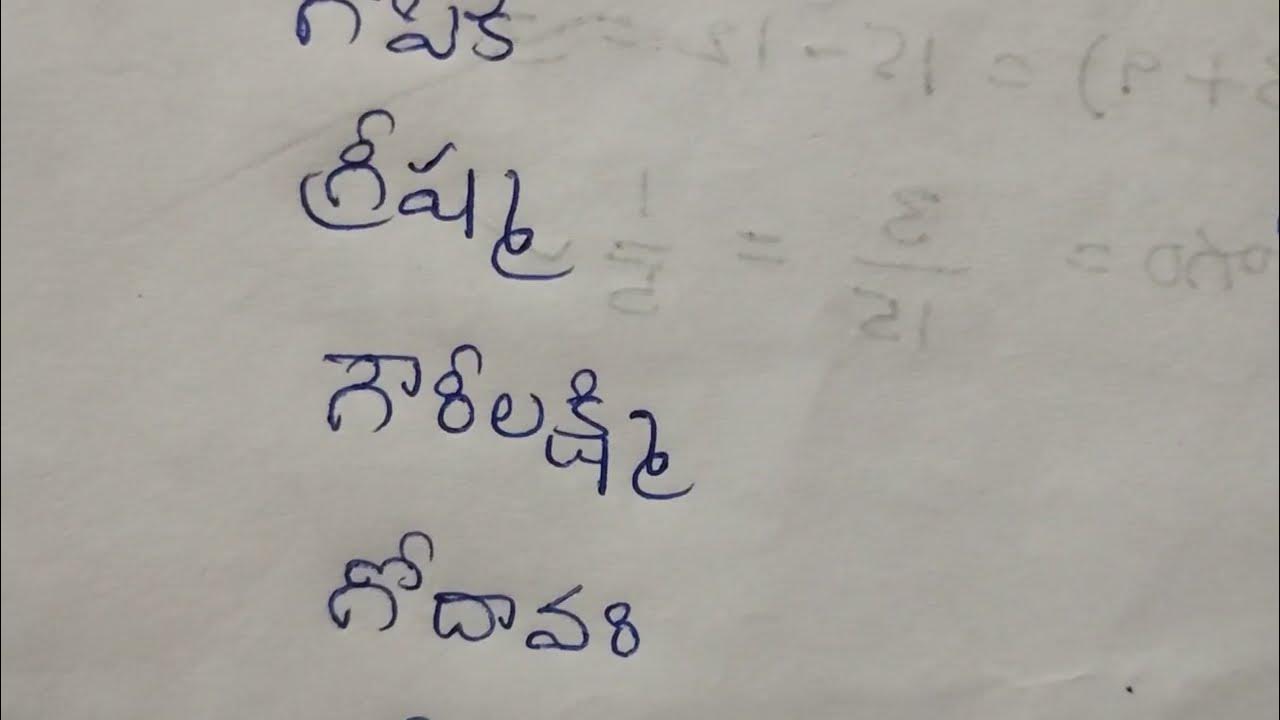 గోపిక
గ్రీష్మ
గౌరీలక్ష్మి
గోదావరి